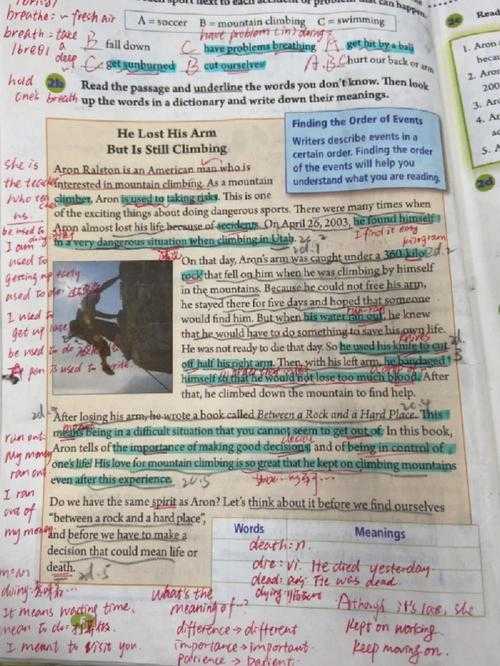 breathe: v
~ fresh air
A = soccer B = mountain climbing C = swimming
breath = take
a
deep
B fall down
C have problems breathing
A get hit by a ball
C get sunburned
B cut ourselves
A.B.C hurt our back or arm
hold
one's breath
2b Read the passage and underline the words you don't know. Then look
up the words in a dictionary and write down their meanings.
He Lost His Arm
But Is Still Climbing
Finding the Order of Events
Writers describe events in a
certain order. Finding the
order of the events will help you
understand what you are reading.
Aron Ralston is an American man who is
interested in mountain climbing. As a mountain
climber, Aron is used to taking risks. This is one
of the exciting things about doing dangerous sports. There were many times when
Aron almost lost his life because of accidents. On April 26, 2003, he found himself
in a very dangerous situation when climbing in Utah.
On that day, Aron's arm was caught under a 360-kilo
rock that fell on him when he was climbing by himself
in the mountains. Because he could not free his arm,
he stayed there for five days and hoped that someone
would find him. But when his water ran out, he knew
that he would have to do something to save his own life.
He was not ready to die that day. So he used his knife to cut
off half his right arm. Then, with his left arm, he bandaged
himself so that he would not lose too much blood. After
that, he climbed down the mountain to find help.
After losing his arm, he wrote a book called Between a Rock and a Hard Place. This
means being in a difficult situation that you cannot seem to get out of. In this book,
Aron tells of the importance of making good decisions, and of being in control of
one's life. His love for mountain climbing is so great that he kept on climbing mountains
even after this experience.
Do we have the same spirit as Aron? Let's think about it before we find ourselves
"between a rock and a hard place",
and before we have to make a
decision that could mean life or
death.
Words Meanings
death: n.
die: vi. He died yesterday
dead: adj. He was dead.
dying
she is
the teacher
who
us
be used to
I am
used to
getting up
used to do
I used to
get up late
be used to do
run out
My money
ran out
I ran
out of
my money
mean
doing
It means wasting time.
mean to do
I meant to visit you.
what's the
meaning of...?
difference → different
importance → important
patience → patient
Although it's late, she
kept on working.
keep moving on.